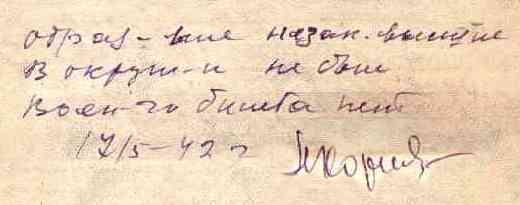 образ-ние незак. высшее
В окруж-и не был
Воен-го билета нет
17/5-42 г